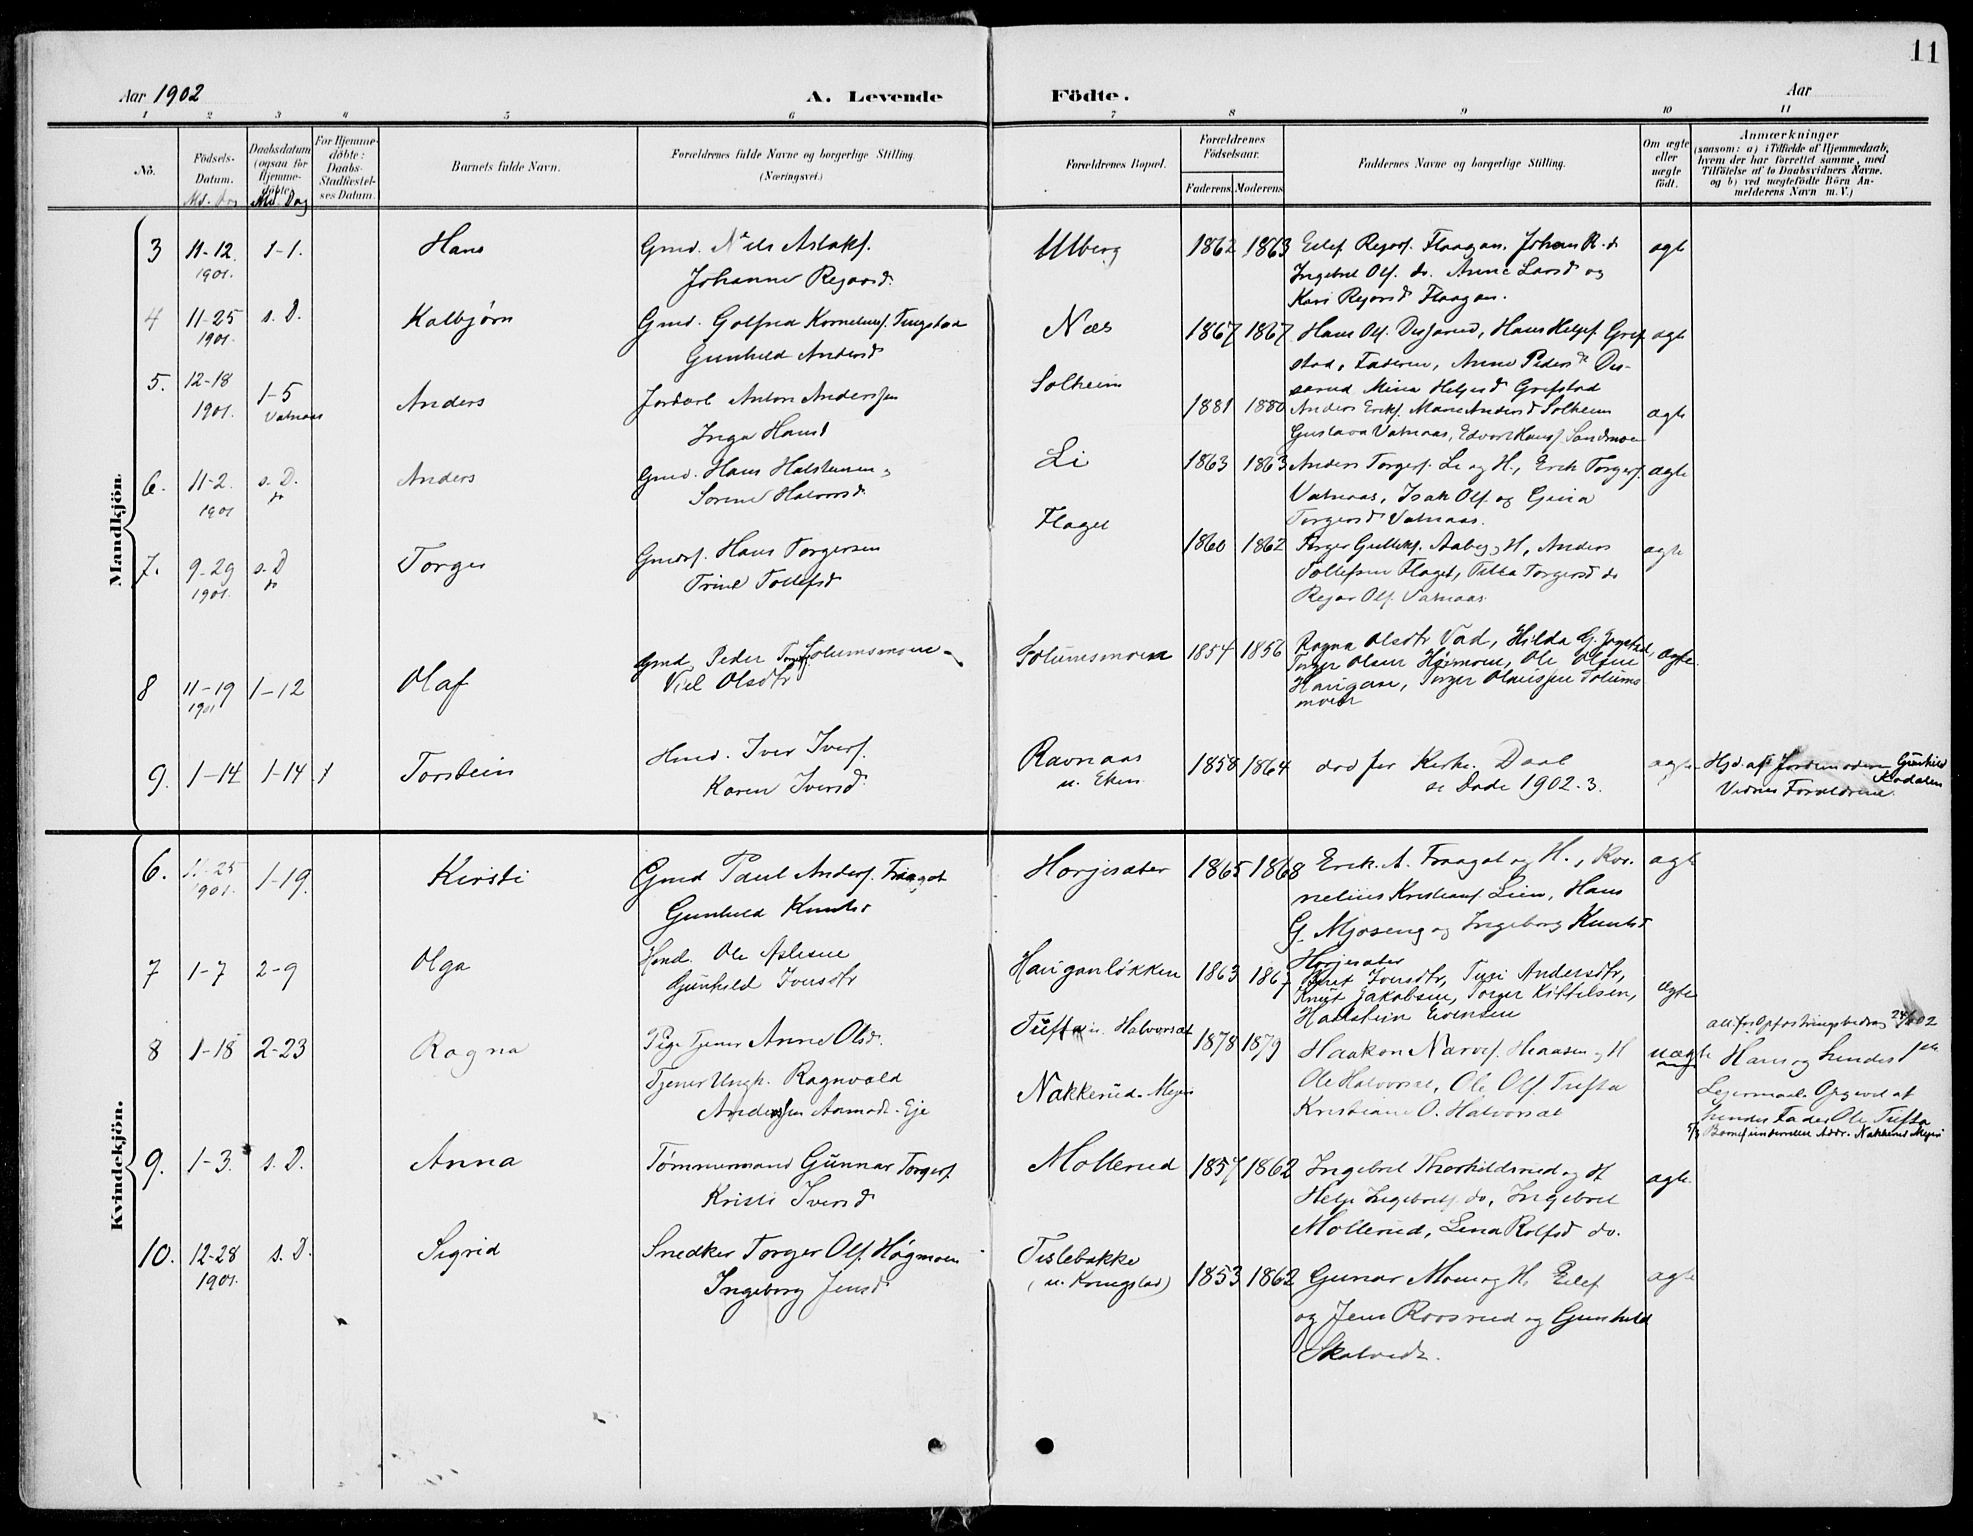 11
Aar 1902
A. Levende Födte.
Aar
1 2 3 4 5 6 7 8 9 10 11
No.
Födsels-Datum.
Md. Dag
Daabsdatum (ogsaa for Hjemmedøbte)
Md. Dag
For Hjemmedøbte: Daabs-Stadfæstelses Datum.
Barnets fulde Navn.
Forældrenes fulde Navne og borgerlige Stilling.
(Næringsvei.)
Forældrenes Bopæl.
Forældrenes Födselsaar.
Faderens Moderens
Faddernes Navne og borgerlige Stilling.
Om ægte eller uægte födt.
Anmærkninger
(saasom: a) i Tilfælde af Hjemmedaab, hvem der har forrettet samme, med Tilföielse af to Daabsvidners Navne, og b) ved uægtefödte Börn Anmelderens Navn m. V.)
Mandkjön.
3 11-12 1-1. Hans Gmd. Nils Aslaks. Ulberg 1862 1863 Eilef Regors. Flaagan. Johan R. do ægte
1901. Johanne Regorsd. Ingebret Ols. do. Anne Larsd og
Kari Regorsd Flaagan.
4 11-25 s. D. Kolbjørn Gmd. Golfred Kornelius. Næs 1867 1867 Hans Ols. Hans Helges. Gref ægte
1901 Gunhild Andersd stad, Faderen, Anne Pedersd
5. 12-18 1-5 Anders Anton Anderssen Solheim Mina Helgesd Grefstad
1901. Vatnaas Inga Hansd 1881 1880 Anders Eriks. Marie Andersd Solheim ægte
Gustava Vatnaas, Edvart Hans. Sandmoen
6. 11-2. s. D. Anders Gmd. Hans Halstensen Li 1863 1863 Anders Torgers. Li og H., Erik Torgers. ægte
1901 do Sorine Halvorsd Vatnaas, Isak Ols. og Gina
Torgersd Vatnaas.
7. 9-29 s. D Torger Hans Torgersen Flaget 1860 1862 Torger Gulliks. Aaby og H, Anders ægte
1901. do Trine Tollefsd Tollefsen Flaget, Torgersd do
Regor Ols. Vatnaas
8 11-19 1-12 Olaf Gmd, Peder Solumsmoen Solumsmoen 1854 1856 Ragna Olsdtr Vad, Hilda G. ægte
1901 Olsdtr Torger Olsen Høimoen, Ole Olsen
Haugan, Torger Olausen Solums
moen
9. 1-14 1-14 1 Torstein Hmd. Iver Ivers. Ravnaas 1858 1864 død før Kirke. Daab ægte Hjd. af Jordemoderen Gunhild
Karen Iversd u. Eken se Døde 1902. 3. Vidner Forældrene.
Kvindekjön.
6. 11-25 1-19. Kirsti Gmd Paul Anders. Fraagot Horjesæter 1865 1868 Erik. A. Fraagot og H., Kor- ægte
1901. Gunhild Knutsd nelius Kristians. Lien, Hans
G. Mjøseng og Ingeborg Knutsd
Horjesæter
7 1-7 2-9 Olga Hmd. Ole Aslesen Hauganløkken 1863 1867 Beret Iversdtr, Turi Andersdtr, ægte
Gunhild Iversdtr Knut Jakobsen, Torger Kittelsen,
Halstein Evensen
8 1-18 2-23 Ragna Pige Tjener Anne Olsd. Tufta u. Halvorsæt 1878 1879 Haakon Narves. og H uægte Hans og hendes 1ste
Tjener Ungk. Ragnvald Nakkerud. Ole Halvorsæt, Ole Ols. Tufta Leiermaal. Opgivet af
Anderssen Kristiane O. Halvorsæt hendes Fader Ole Tufta
9. 1-3. s. D. Anna Tømmermand Gunnar Torgers. Mollerud 1857 1862 Ingebret Thorhildsrud og H ægte.
Kristi Iversd Helge Ingebrets. do, Ingebret
Mollerud, Lena Rolfsd do.
10. 12-28 s. D. Sigrid Snedker Torger Ols. Høgmoen Tislebakke 1853 1862 Gunar Moen og H. Eilef ægte
1901. Ingeborg Jensd (u. Kongstad) og Jens Roosrud og Gunhild